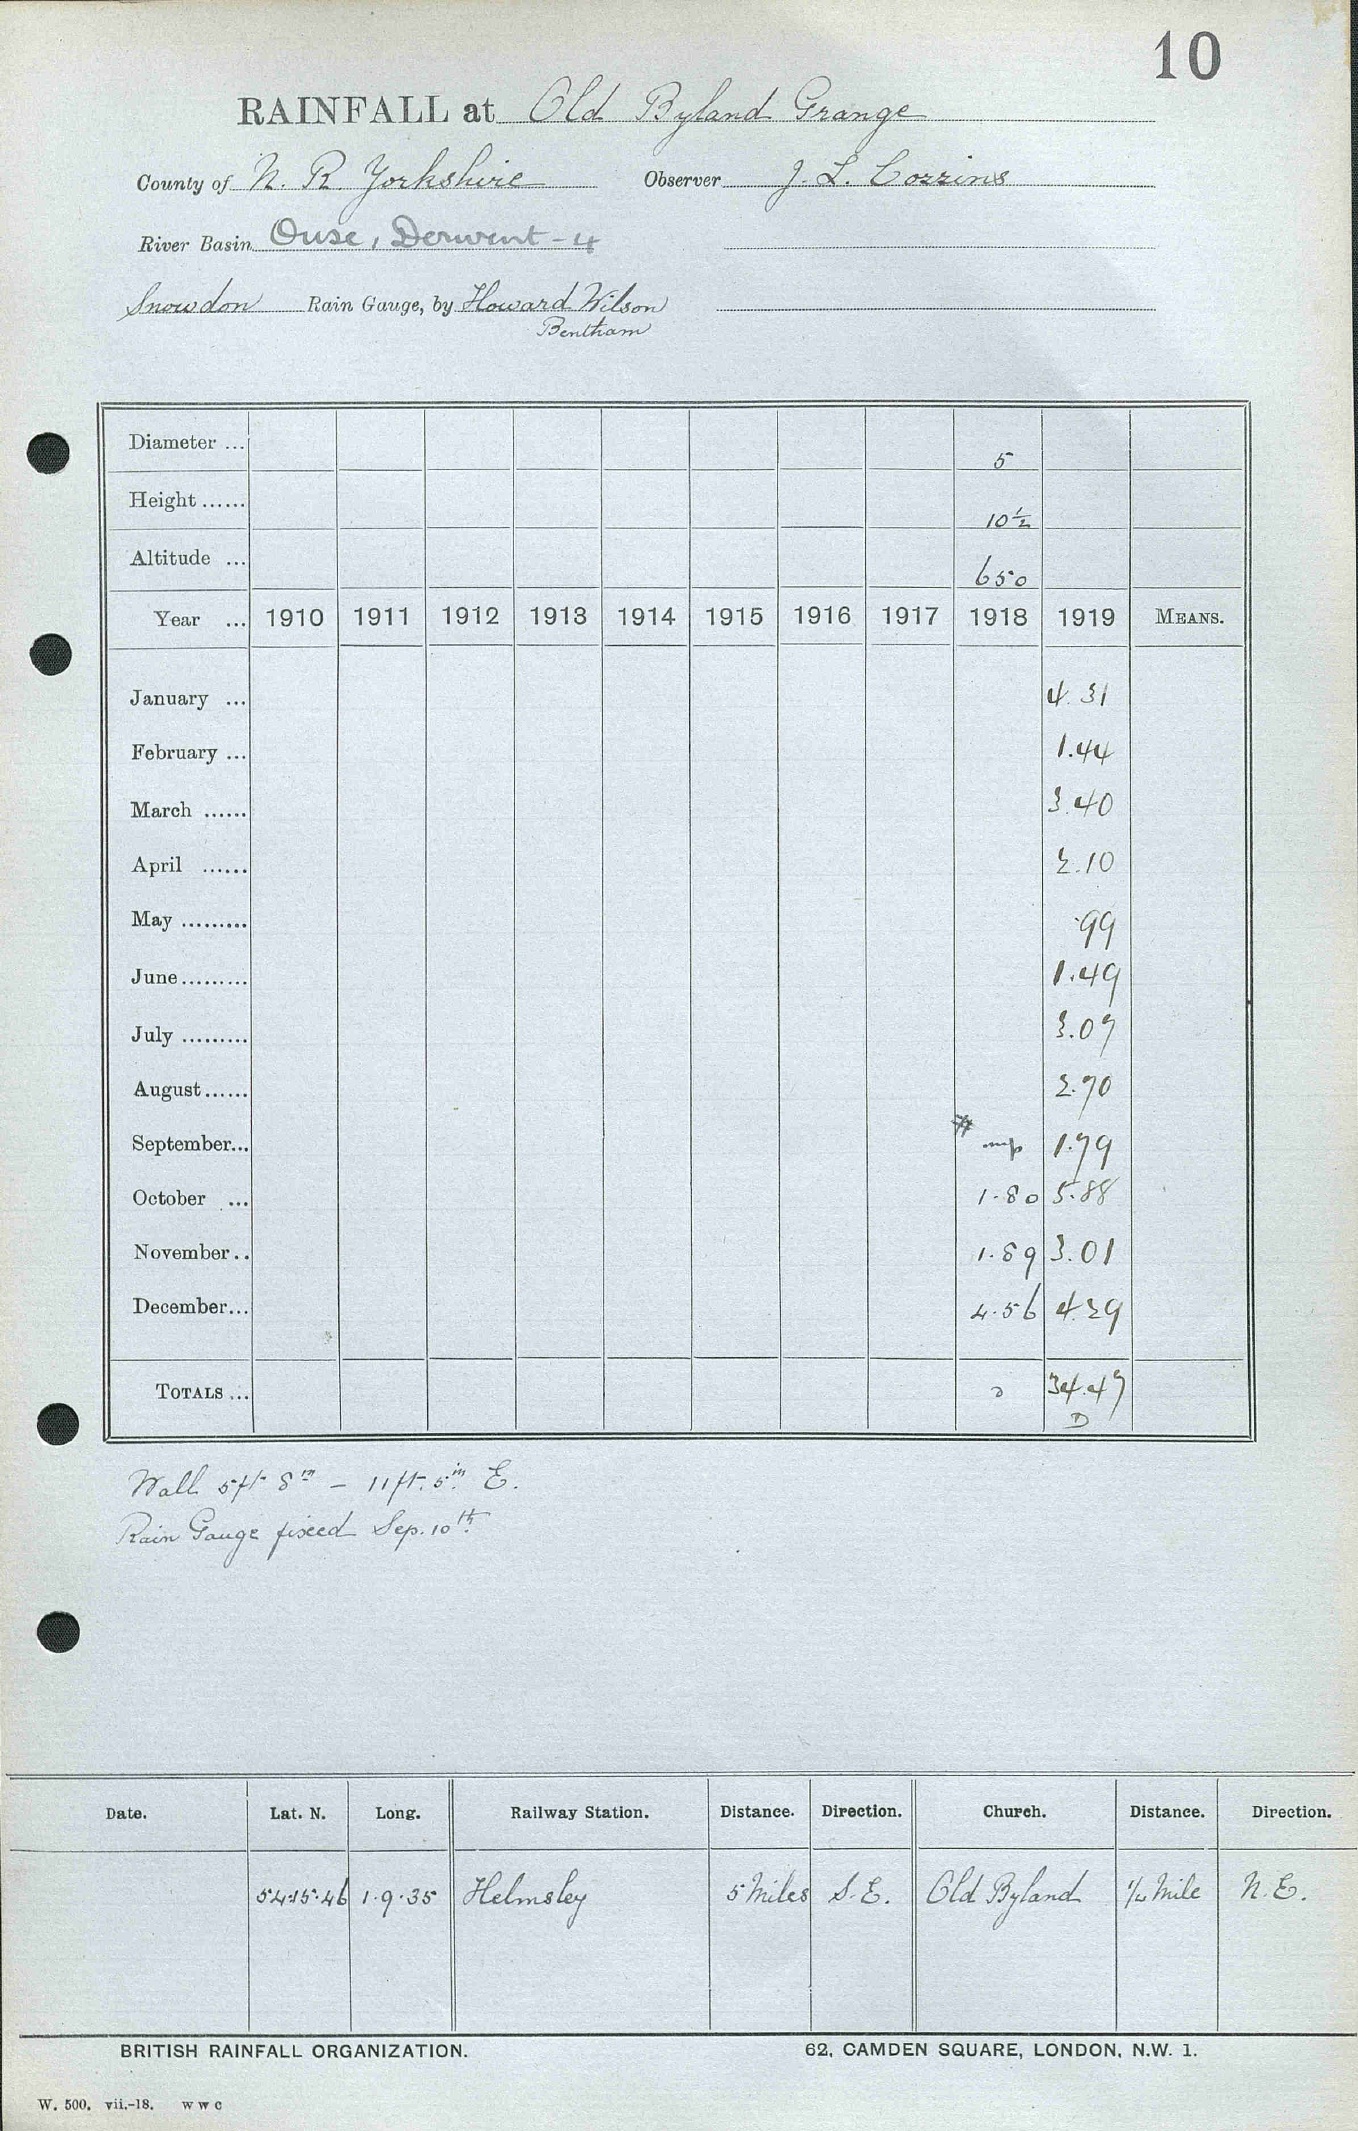 10
RAINFALL at Old Byland Grange
County of N. R. Yorkshire Observer J. L. Cozzins
River Basin Ouse, Derwent - 4
Snowdon Rain Gauge, by Howard Wilson
Bentham
Diameter ... 5
Height ...... 10 1/2
Altitude ... 650
Year ... 1910 1911 1912 1913 1914 1915 1916 1917 1918 1919 MEANS.
January ... 4.31
February ... 1.44
March ...... 3.40
April ...... 2.10
May ......... .99
June ......... 1.49
July ......... 3.07
August ...... 2.70
September... 1.79
October ... 1.80 5.88
November.. 1.89 3.01
December... 4.56 4.29
TOTALS ... 34.47
D
Wall 5ft 8in – 11ft. 5in. E.
Rain Gauge fixed Sep. 10th.
Date. Lat. N. Long. Railway Station. Distance. Direction. Church. Distance. Direction.
54.15.46 1.9.35 Helmsley 5 Miles S.E. Old Byland 1/4 Mile N.E.
BRITISH RAINFALL ORGANIZATION. 62, CAMDEN SQUARE, LONDON, N.W. 1.
W. 500. vii.-18. W W C